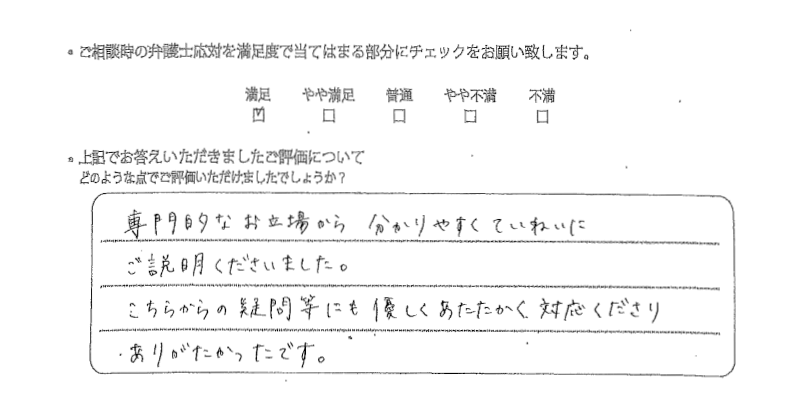 ・ご相談時の弁護士応対を満足度で当てはまる部分にチェックをお願い致します。
満足 やや満足 普通 やや不満 不満
☑ □ □ □ □
・上記でお答えいただきましたご評価について
どのような点でご評価いただけましたでしょうか？
専門的なお立場から 分かりやすくていねいに
ご説明くださいました。
こちらからの疑問等にも優しくあたたかく対応くださり
ありがたかったです。